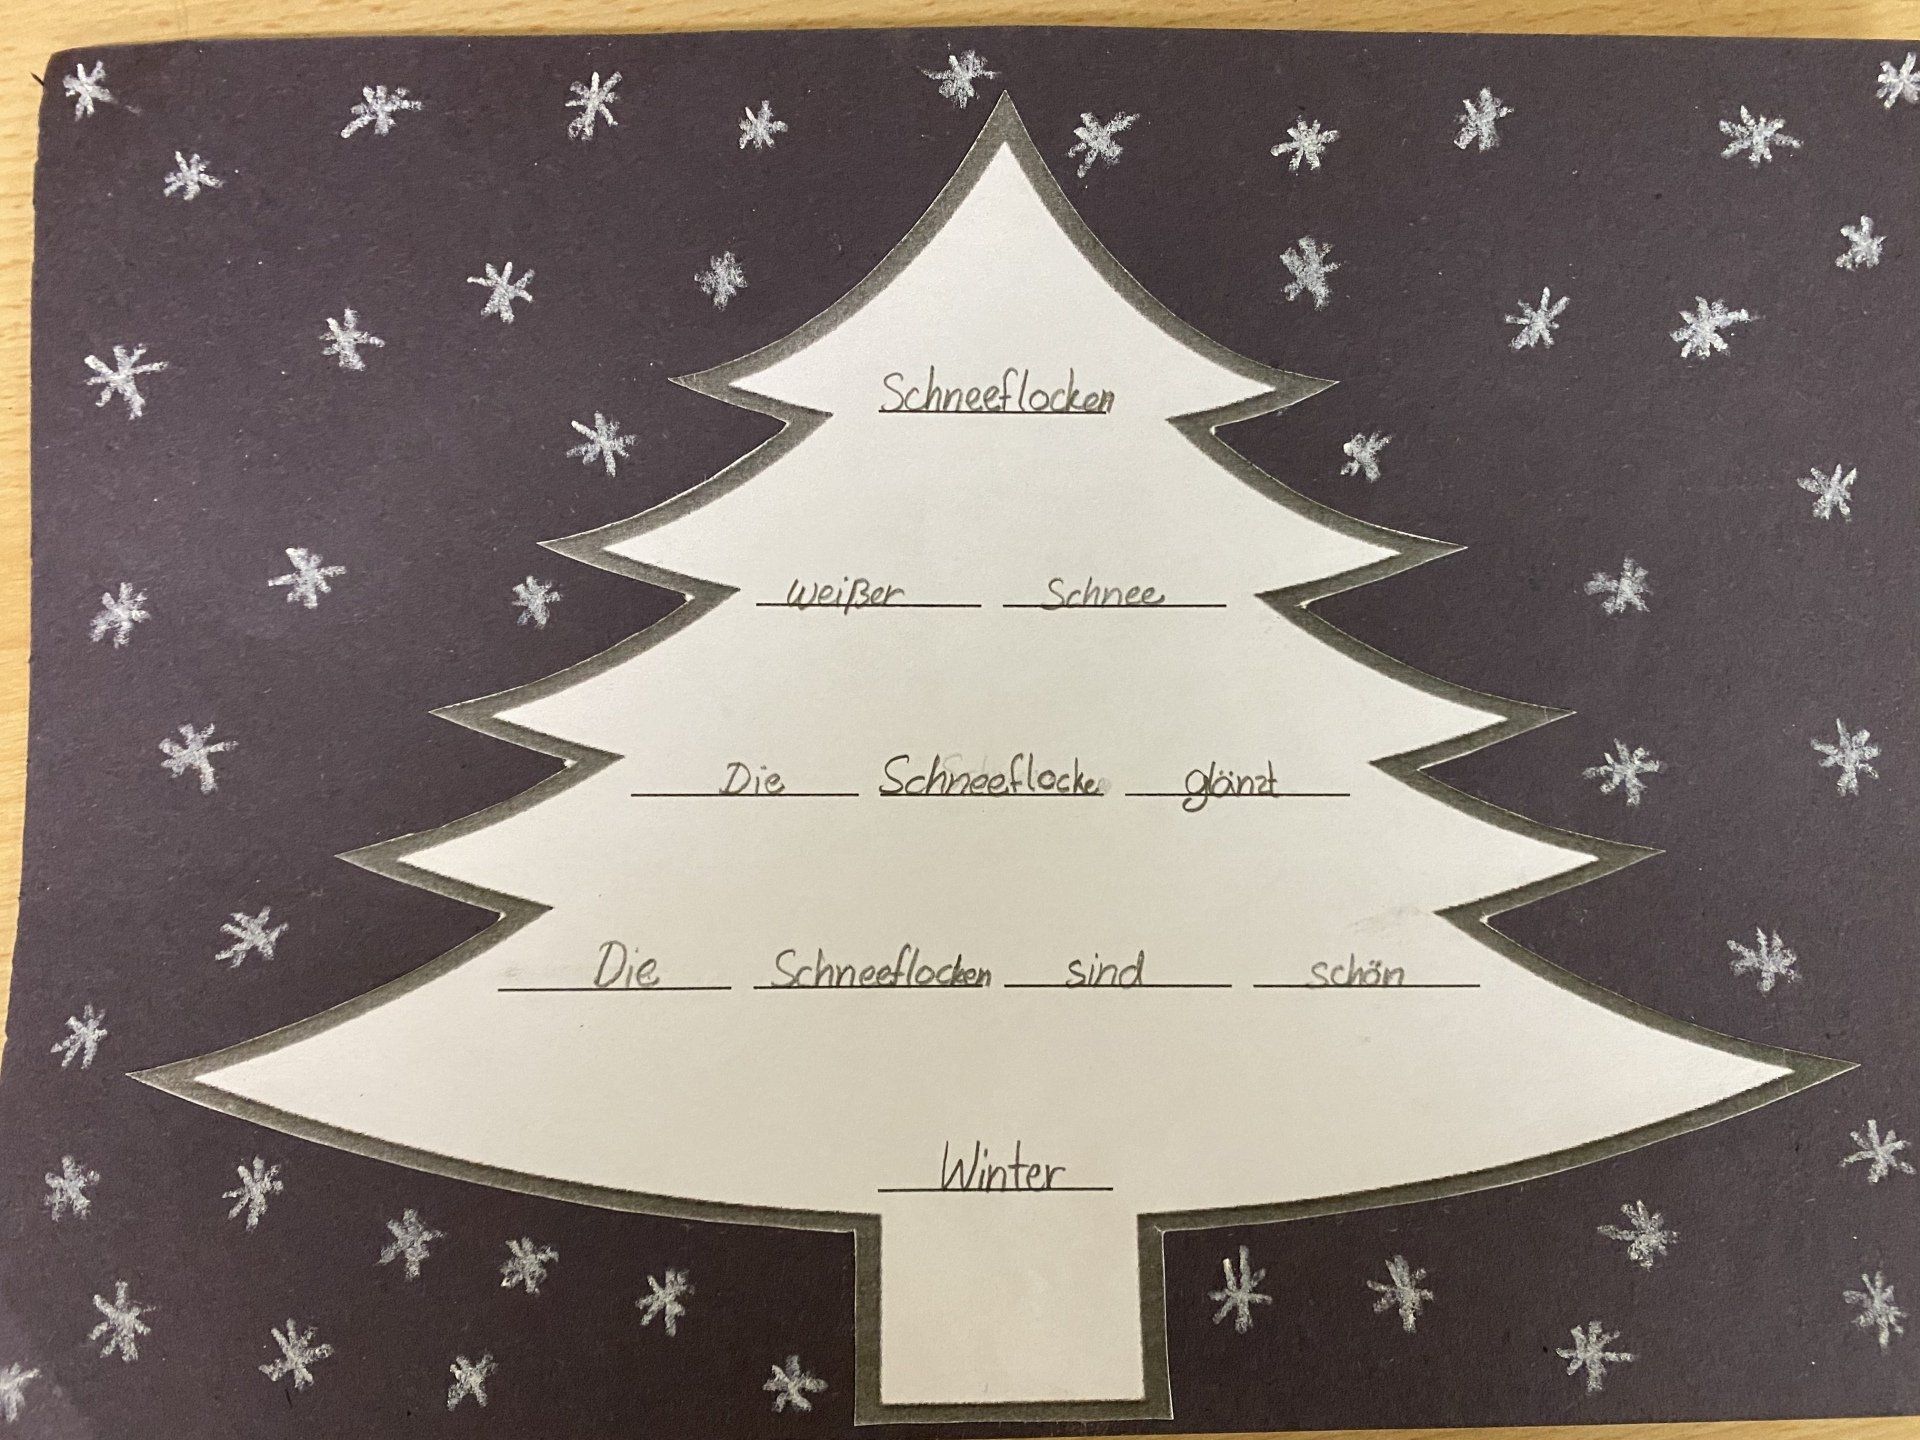 Schneeflocken
weißer Schnee
Die Schneeflocke glänzt
Die Schneeflocken sind schön
Winter